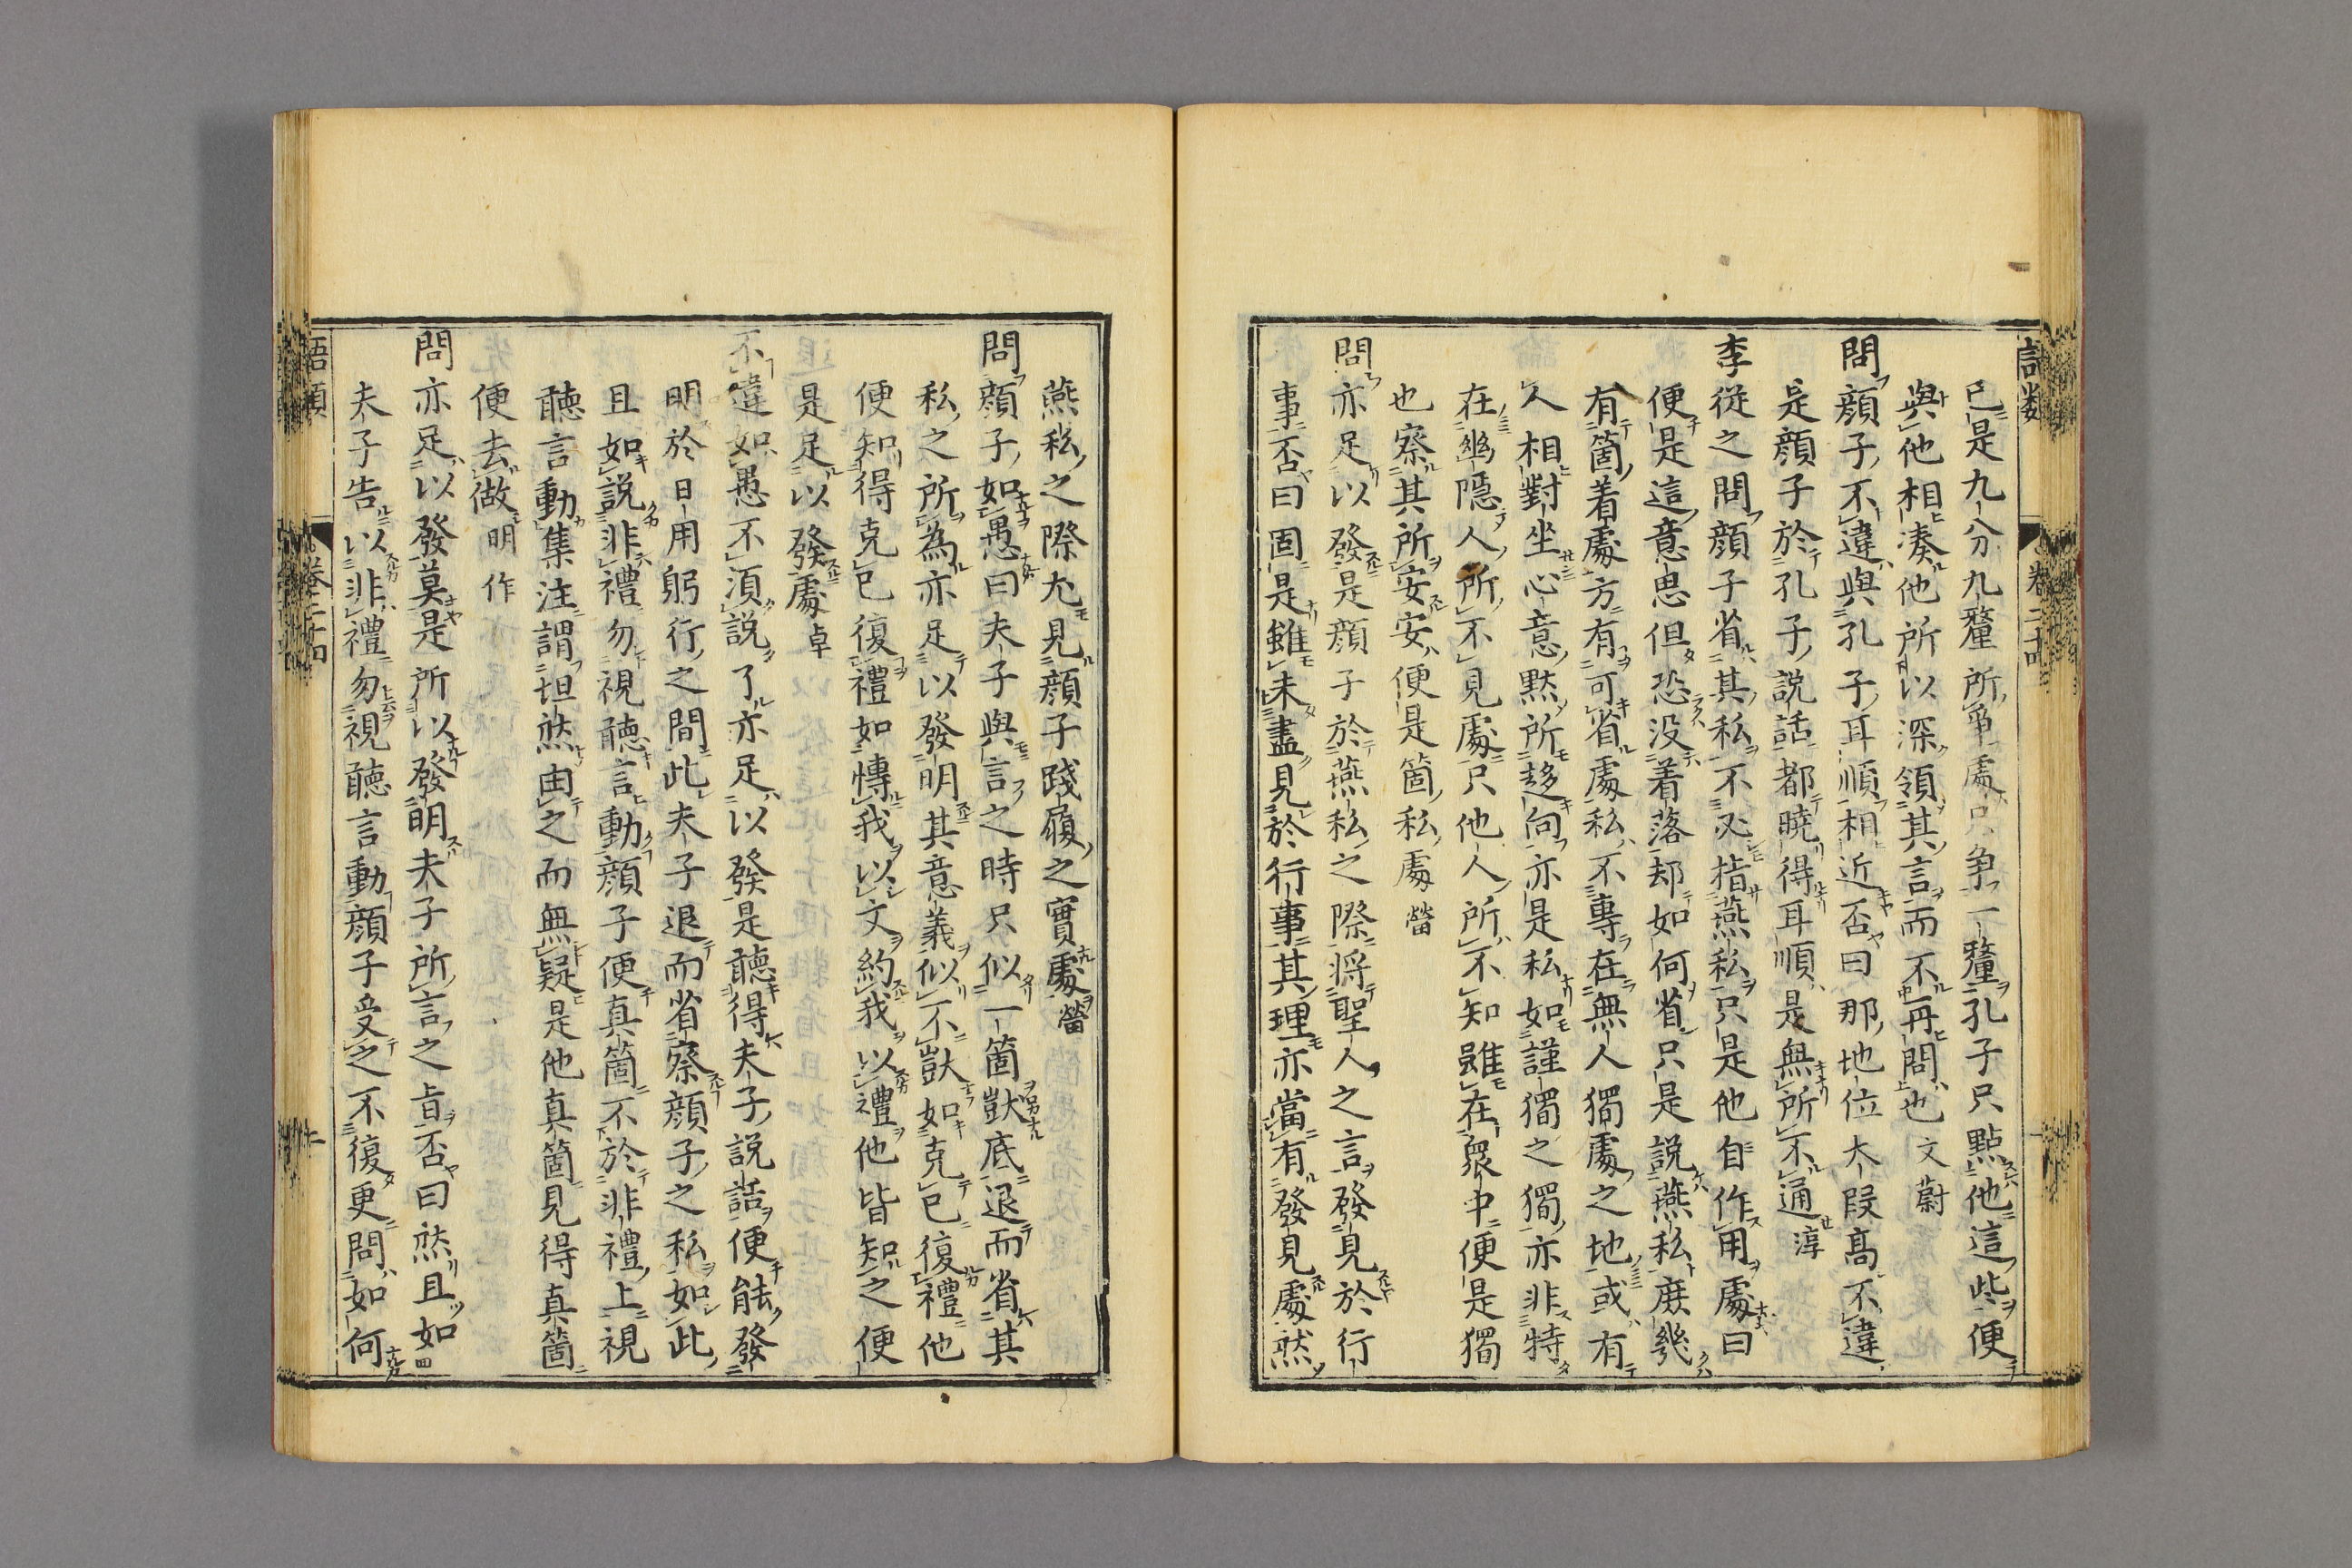 語類
卷二十四
已是九分九釐所爭處只爭一釐孔子只點他這些便
與他相湊他所以深領其言而不再問也文蔚
問顔子不違與孔子耳順相近否曰那地位大段高不違
是顔子於孔子說話都曉得耳順是無所不通淳
李從之問顔子省其私不必指燕私只是他自作用處曰
便是這意思但恐没着落却如何省只是説燕私庶幾
有箇着處方有可省處私不專在無人獨處之地或有
人相對坐心意黙所趍向亦是私如謹獨之獨亦非特
在幽隱人所不見處只他人所不知雖在衆中便是獨
也察其所安安便是箇私處㽦
問亦足以發是顔子於燕私之際將聖人之言發見於行
事否曰固是雖未盡見於行事其理亦當有發見處然
燕私之際尢見顔子踐履之實處㽦
問顔子如愚曰夫子與言之時只似一箇獃底退而省其
私之所為亦足以發明其意義似不獃如克己復禮他
便知得克己復禮如博我以文約我以禮他皆知之便
是足以發處卓
不違如愚不須説了亦足以發是聽得夫子說話便能發
明於日用躬行之間此夫子退而省察顔子之私如此
且如説非禮勿視聽言動顔子便真箇不於非禮上視
聽言動集注謂坦然由之而無疑是他真箇見得真箇
便去做明作
問亦足以發莫是所以發明夫子所言之旨否曰然且如
夫子告以非禮勿視聽言動顔子受之不復更問如何
語類
卷二十四